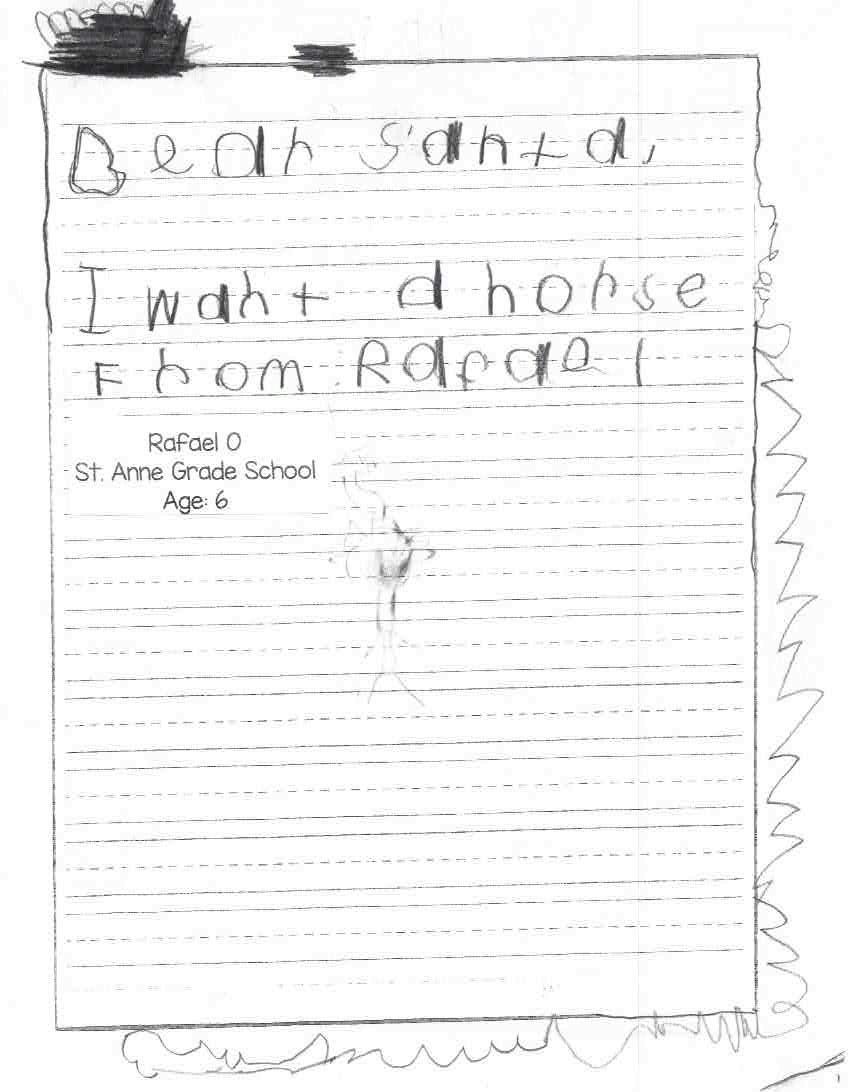 Dear Santa,
I want a horse
From Rafael
Rafael O
St. Anne Grade School
Age: 6